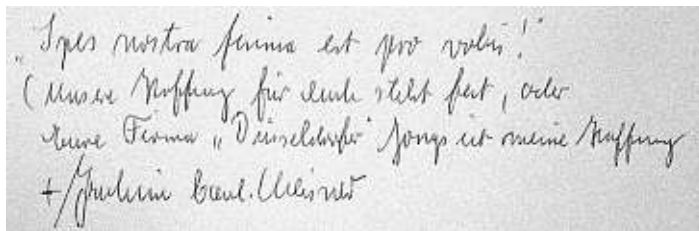 „Spes nostra firma est pro vobis!"
(Unsere Hoffnung für Euch steht fest, oder
Eure Firma „Düsseldorfer" Jongs ist meine Hoffnung
+ Joachim Card. Meisner